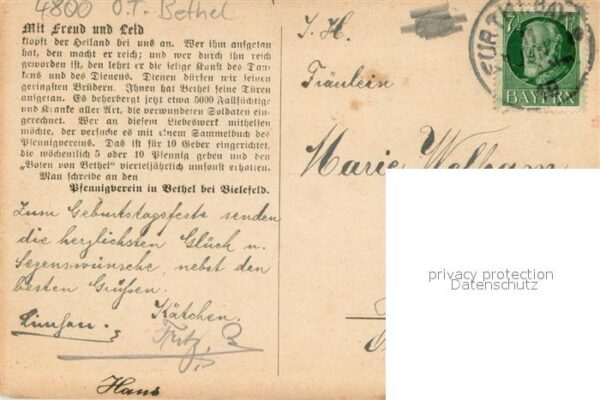 4800 O.T. Bethel
Mit Freud und Leid
klopft der Heiland bei uns an. Wer ihm aufgetan
hat, den macht er reich; und wer durch ihn reich
geworden ist, den lehrt er die selige Kunst des Dan-
kens und des Dienens. Dienen dürfen wir seinen
geringsten Brüdern. Ihnen hat Bethel seine Türen
aufgetan. Es beherbergt jetzt etwa 5000 Fallsüchtige
und Kranke aller Art, die verwundeten Soldaten ein-
gerechnet. Wer an diesem Liebeswerk mithelfen
möchte, der versuche es mit einem Sammelbuch des
Pfennigvereins. Das ist für 10 Geber eingerichtet,
die wöchentlich 5 oder 10 Pfennig geben und den
„Boten von Bethel" vierteljährlich umsonst erhalten.
Man schreibe an den
Pfennigverein in Bethel bei Bielefeld.
Zum Geburtstagsfeste senden
die herzlichsten Glück u.
Segenswünsche, nebst den
besten Grüßen.
Kätchen.
Fritz
Hans
I. H.
Fräulein
Marie
FÜRTH
7½
BAYERN
privacy protection
Datenschutz